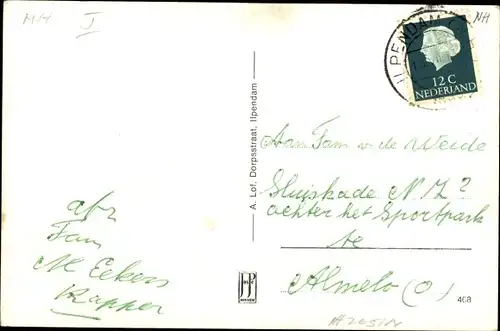 MH I NH
ILPENDAM
12 C
NEDERLAND
A. Lof, Dorpsstraat, Ilpendam
Aan Fam v.d. Weide
Sluiskade N.Z?
achter het Sportpark
te
Almelo (O)
afz
Fam
M Eekers
468